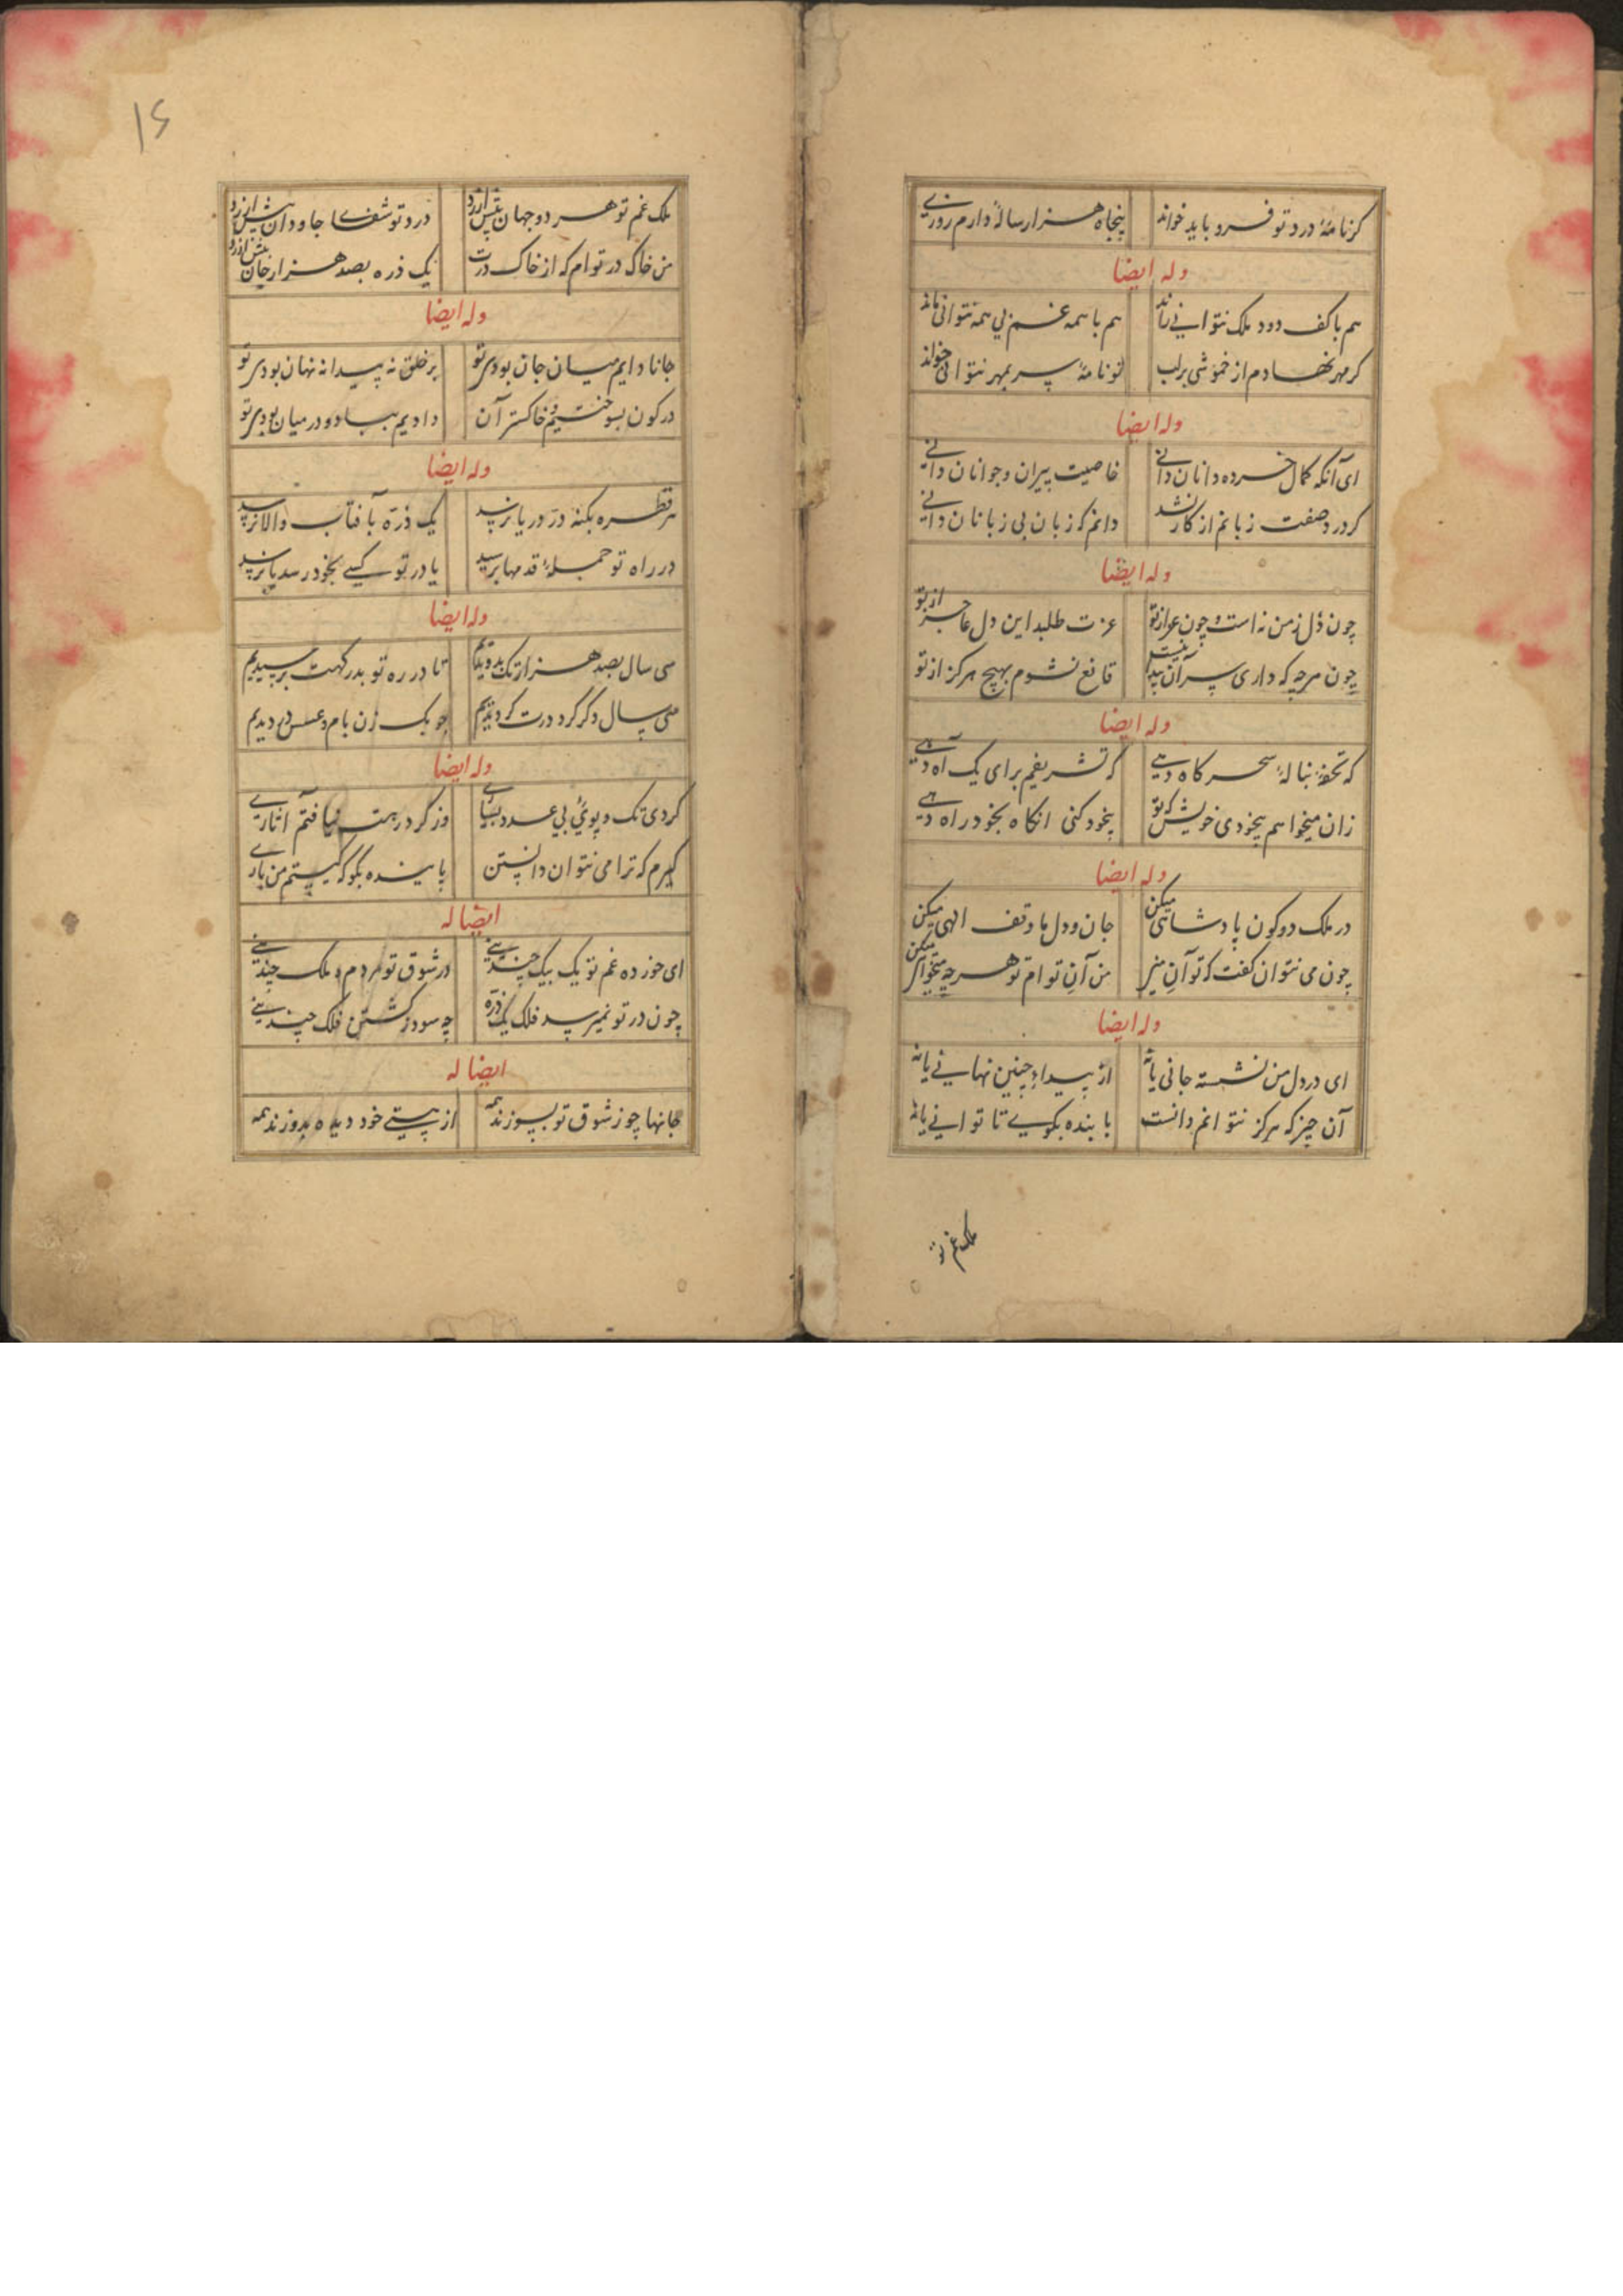 کرنامهٔ درد تو فرو باید خواند پنجاه هزار ساله دارم روزی
وله ایضا
هم با کف دود ملک نتوانی راند هم با همه غم بی همه نتوانی ماند
کر مهر نهادم از خموشی بر لب تو نامهٔ سر بمهر نتوانی خواند
وله ایضا
ای آنکه کمال خرده دانان دانی خاصیت پیران و جوانان دانی
کر در صفت زبانم از کار بشد دانم که زبان بی زبانان دانی
وله ایضا
چون دل ز من است و چون عز از تو عزت طلبد این دل عاجز از تو
چون هرچه که داری سر آن پیدا نیست قانع نشوم بهیچ هرکز از تو
وله ایضا
که تحفه بنالهٔ سحرکاه دهی که تشریفم برای یک آه دهی
زان میخواهم بیخودی خویش که تو بیخود کنی انکاه بخود راه دهی
وله ایضا
در ملک دو کون پادشاهی میکن جان و دل ما وقف الهی میکن
چون می نتوان کفت که تو آن منی من آن تو ام تو هرچه میخواهی میکن
وله ایضا
ای در دل من نشسته جانی یا نه از پیدایی چنین نهانی یا نه
آن چیز که هرکز نتوانم دانست با بنده بکویی تا توانی یا نه
ملک غم تو
۱۶
ملک غم تو هر دو جهان بیش ارزد درد تو شفای جاودان بیش ارزد
من خاک در تو ام که از خاک درت یک ذره بصد هزار جان بیش ارزد
وله ایضا
جانا دایم میان جان بودی تو بر خلق نه پیدا نه نهان بودی تو
در کون بسوختیم و خاکستر آن دادیم بباد و در میان بودی تو
وله ایضا
هر قطره بکنه در دریا نرسد یک ذره بآفتاب والا نرسد
در راه تو جملهٔ قدمها برسید یا در تو کسی بخود رسد یا نرسد
وله ایضا
سی سال بصد هزار تک بدویدیم تا در ره تو بدرکهت برسیدیم
سی سال دکر کرد درت کردیدیم چوبک زن بام و عسس در دیدیم
وله ایضا
کردی تک و پوی بی عدد بسیاری وز کرد رهت نیافتم آثاری
کیرم که ترا می نتوان دانستن با بنده بکو که کیستم من باری
ایضا له
ای خورده غم تو یک بیک چندینی در شوق تو مردم و ملک چندینی
چون در تو نمیرسد فلک یک ذره چه سود ز کشتن فلک چندینی
ایضا له
جانها چو ز شوق تو بسوزند همه از هستی خود دیده بدوزند همه